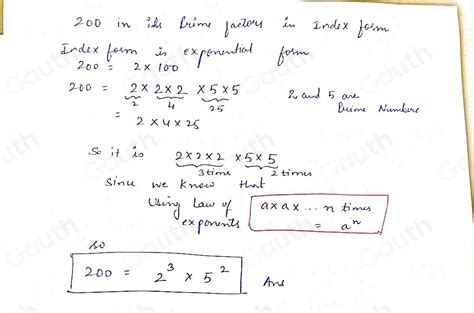 200 in its Prime factors in Index form
Index form is exponential form
200 = 2 × 100
200 = 2 × 2 × 2 × 5 × 5
2 4 25
2 and 5 are
Prime Numbers
= 2 × 4 × 25
So it is 2×2×2 × 5×5
3 time 2 times
Since we know that
Using Law of
exponents
a×a×... n times
= aⁿ
so
200 = 2³ × 5²
Ans
Gauth